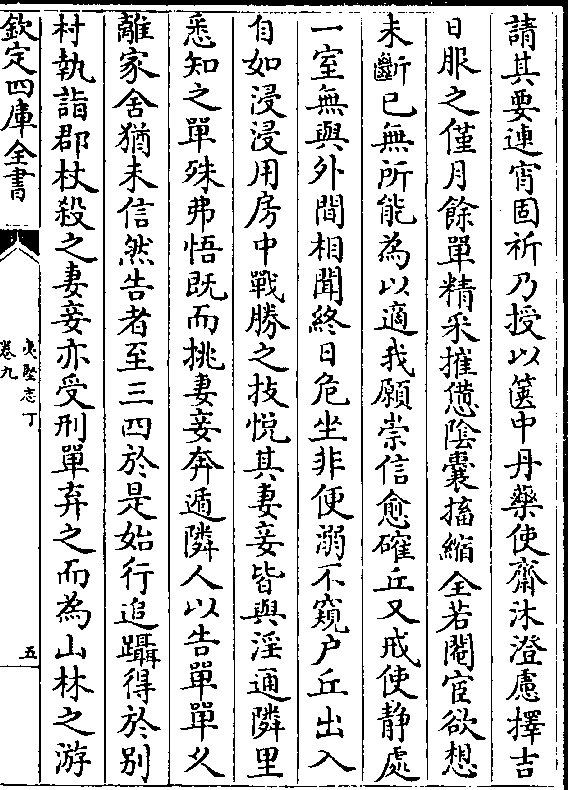 請其要連宵固祈乃授以篋中丹藥使齋沐澄慮擇吉
日服之僅月餘單精采摧憊陰囊搐縮全若閹宦欲想
未斷已無所能為以適我願崇信愈確丘又戒使静處
一室無與外間相聞終日危坐非便溺不窺户丘出入
自如浸浸用房中戰勝之技悦其妻妾皆與淫通隣里
悉知之單殊弗悟既而挑妻妾奔遁隣人以告單單久
離家舍猶未信然告者至三四於是始行追躡得於别
村執詣郡杖殺之妻妾亦受刑單弃之而為山林之游
欽定四庫全書
夷堅志丁
卷九
五